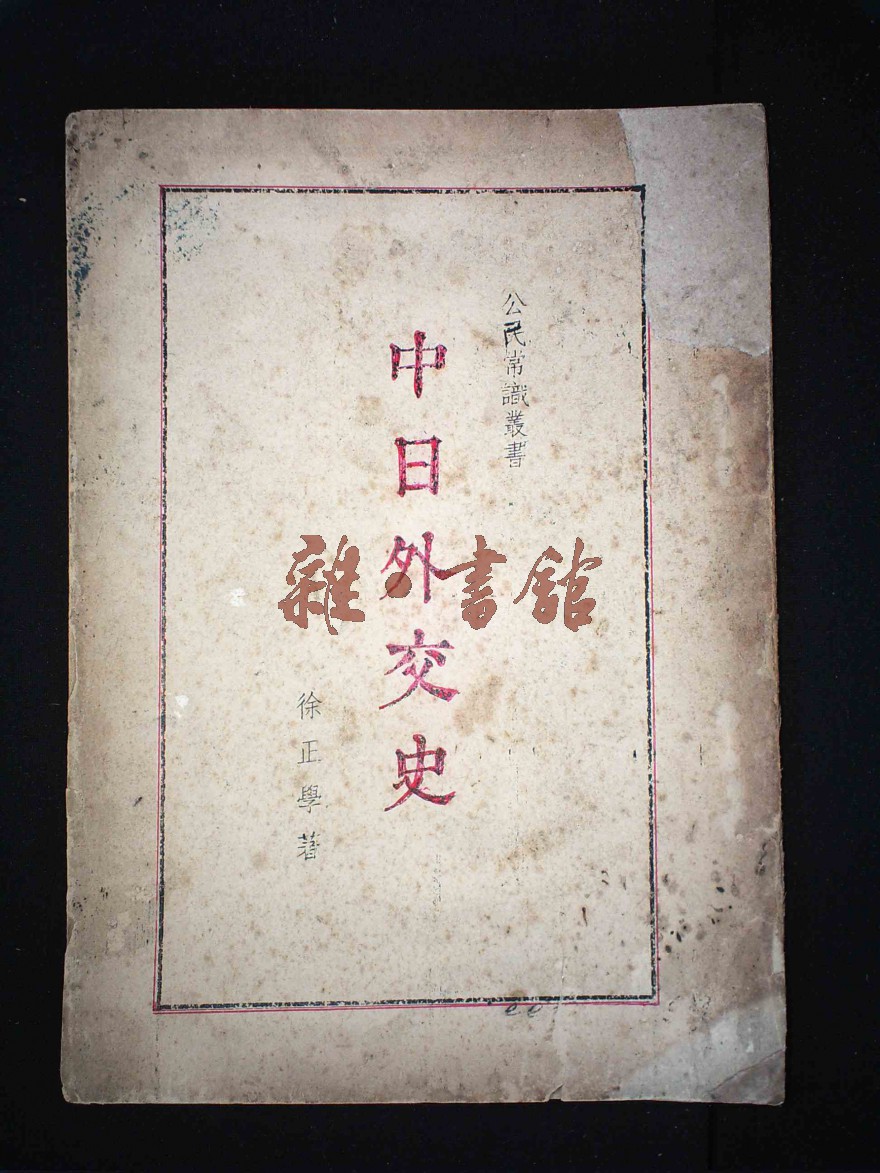 公民常識叢書
中日外交史
徐正學著
雜書館